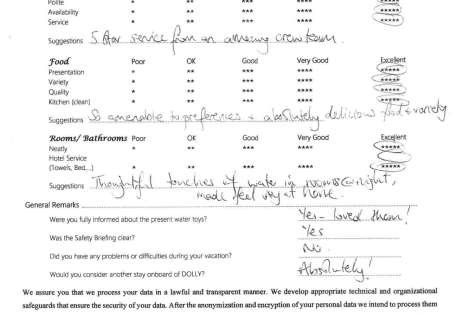 Polite * ** *** **** *****
Availability * ** *** **** *****
Service * ** *** **** *****
Suggestions 5 star service from an amazing crew team.
Food Poor OK Good Very Good Excellent
Presentation * ** *** **** *****
Variety * ** *** **** *****
Quality * ** *** **** *****
Kitchen (clean) * ** *** **** *****
Suggestions So amenable to preferences + absolutely delicious food & variety
Rooms/ Bathrooms Poor OK Good Very Good Excellent
Neatly * ** *** **** *****
Hotel Service
(Towels, Bed...) * ** *** **** *****
Suggestions Thoughtful touches of water in rooms @ night,
made feel very at home.
General Remarks
Were you fully informed about the present water toys? Yes - loved them!
Was the Safety Briefing clear? Yes
Did you have any problems or difficulties during your vacation? No.
Would you consider another stay onboard of DOLLY? Absolutely!
We assure you that we process your data in a lawful and transparent manner. We develop appropriate technical and organizational
safeguards that ensure the security of your data. After the anonymization and encryption of your personal data we intend to process them